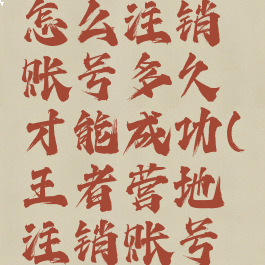 怎么注销
账号多久
才能成功(
王者营地
注销账号